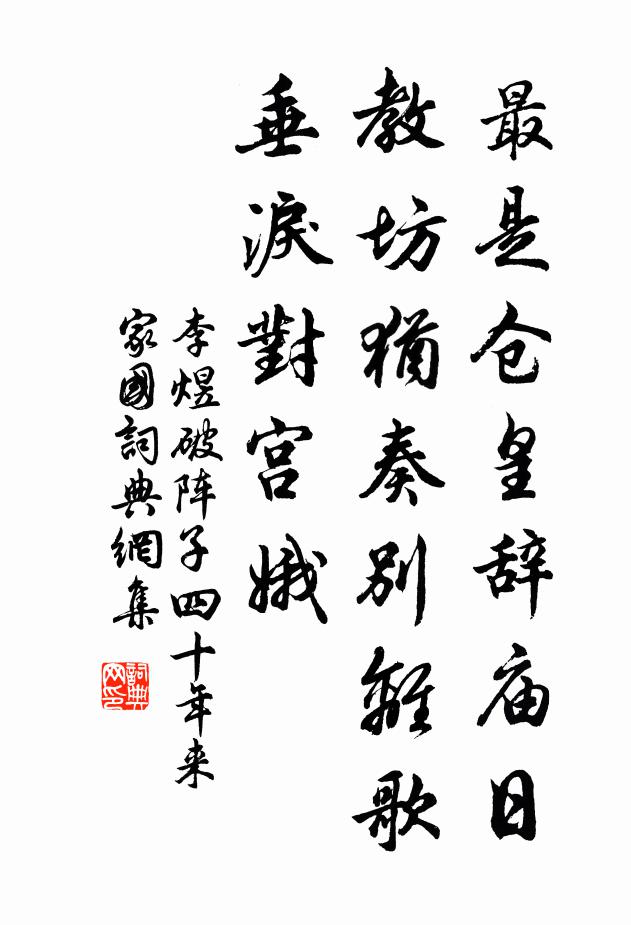 最是仓皇辞庙日
教坊猶奏别離歌
垂淚對宫娥
李煜破阵子四十年来
家國詞典網集
詞典网印